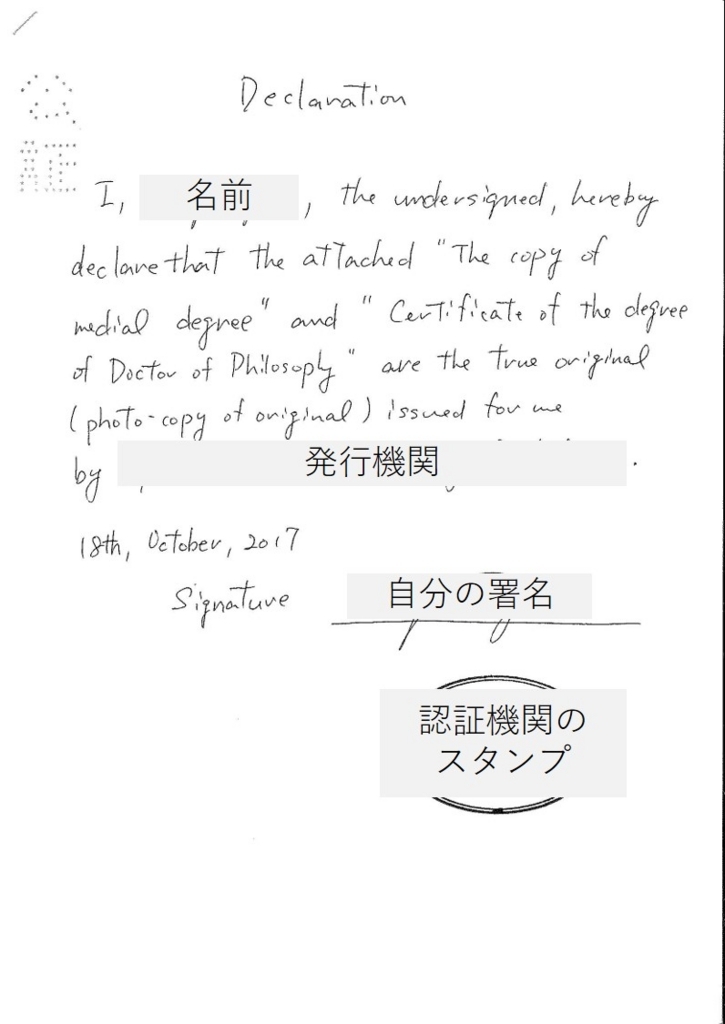 公
証
Declaration
I, 名前, the undersigned, hereby
declare that the attached "The copy of
medial degree" and "Certificate of the degree
of Doctor of Philosoply" are the true original
(photo-copy of original) issued for me
by 発行機関.
18th, October, 2017
Signature 自分の署名
認証機関の
スタンプ